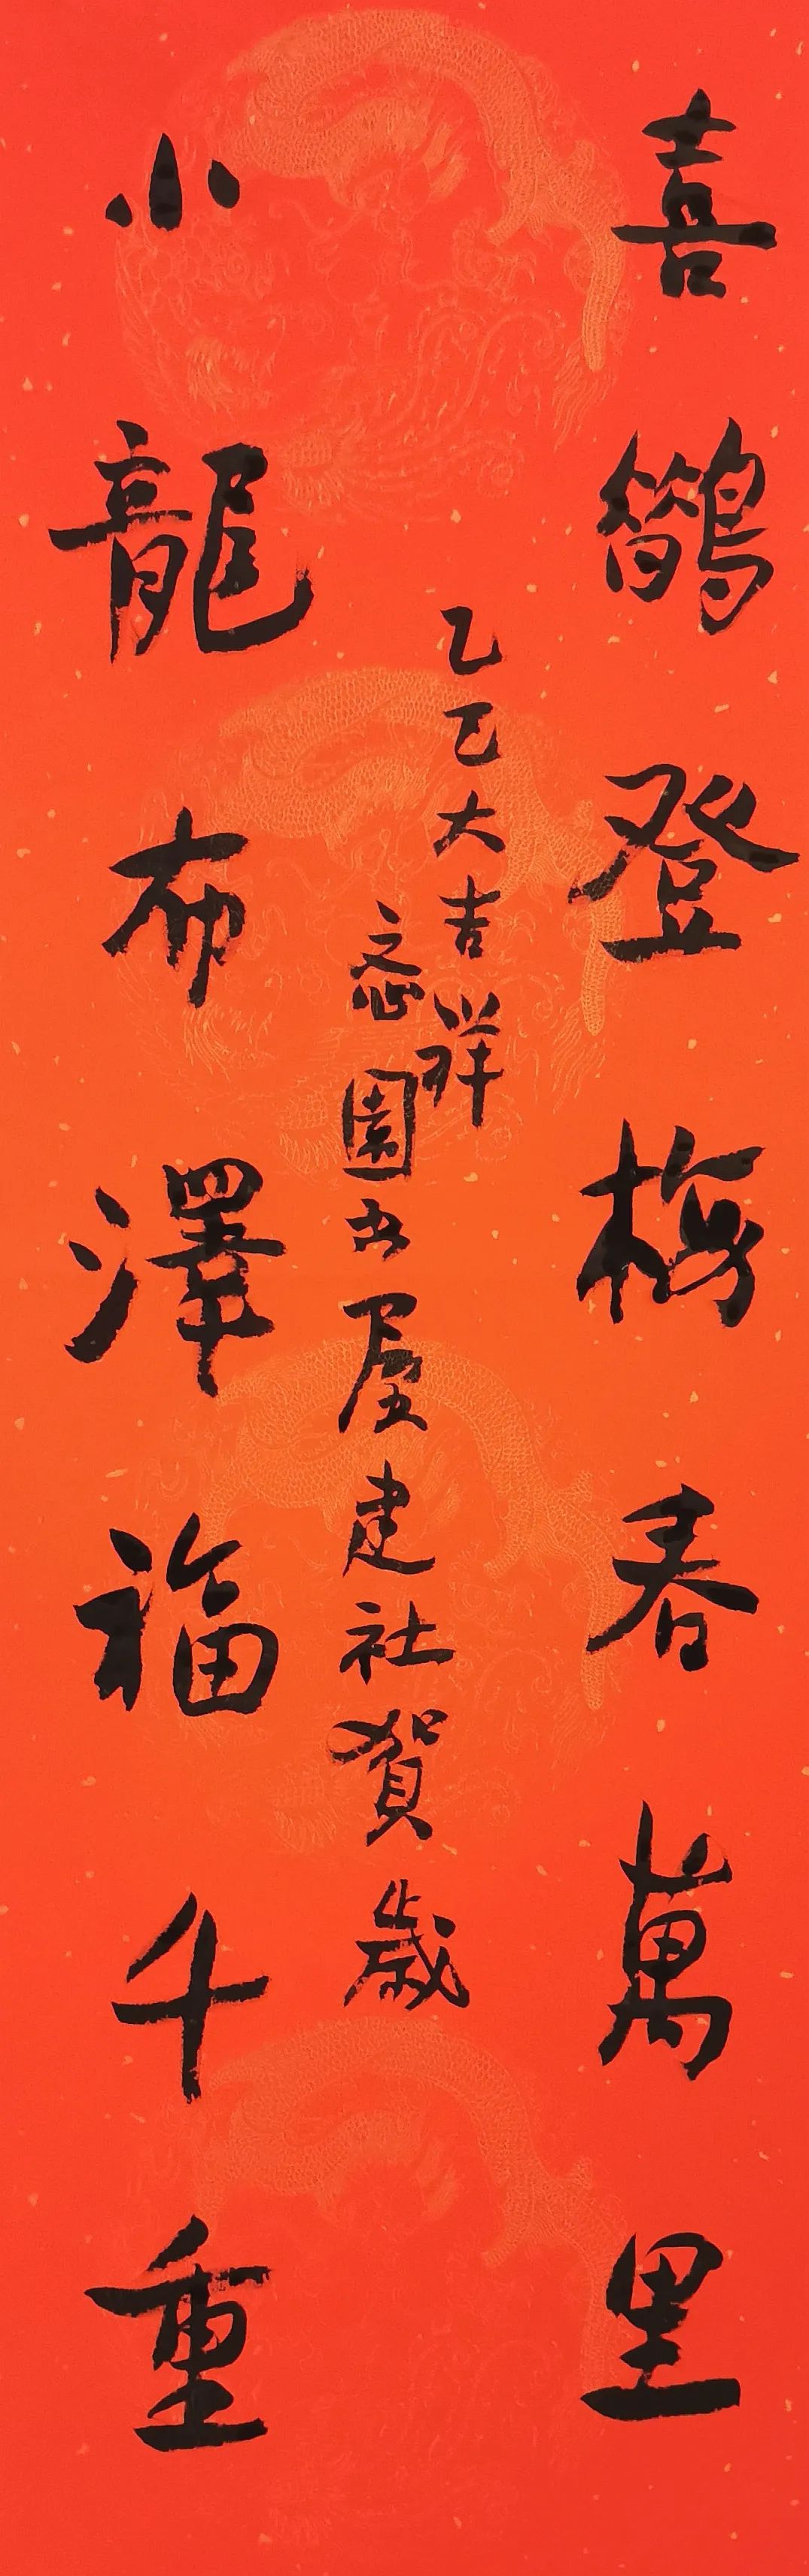 喜鵲登梅春萬里
乙巳大吉祥
忞園书屋建社賀歲
小龍布澤福千重